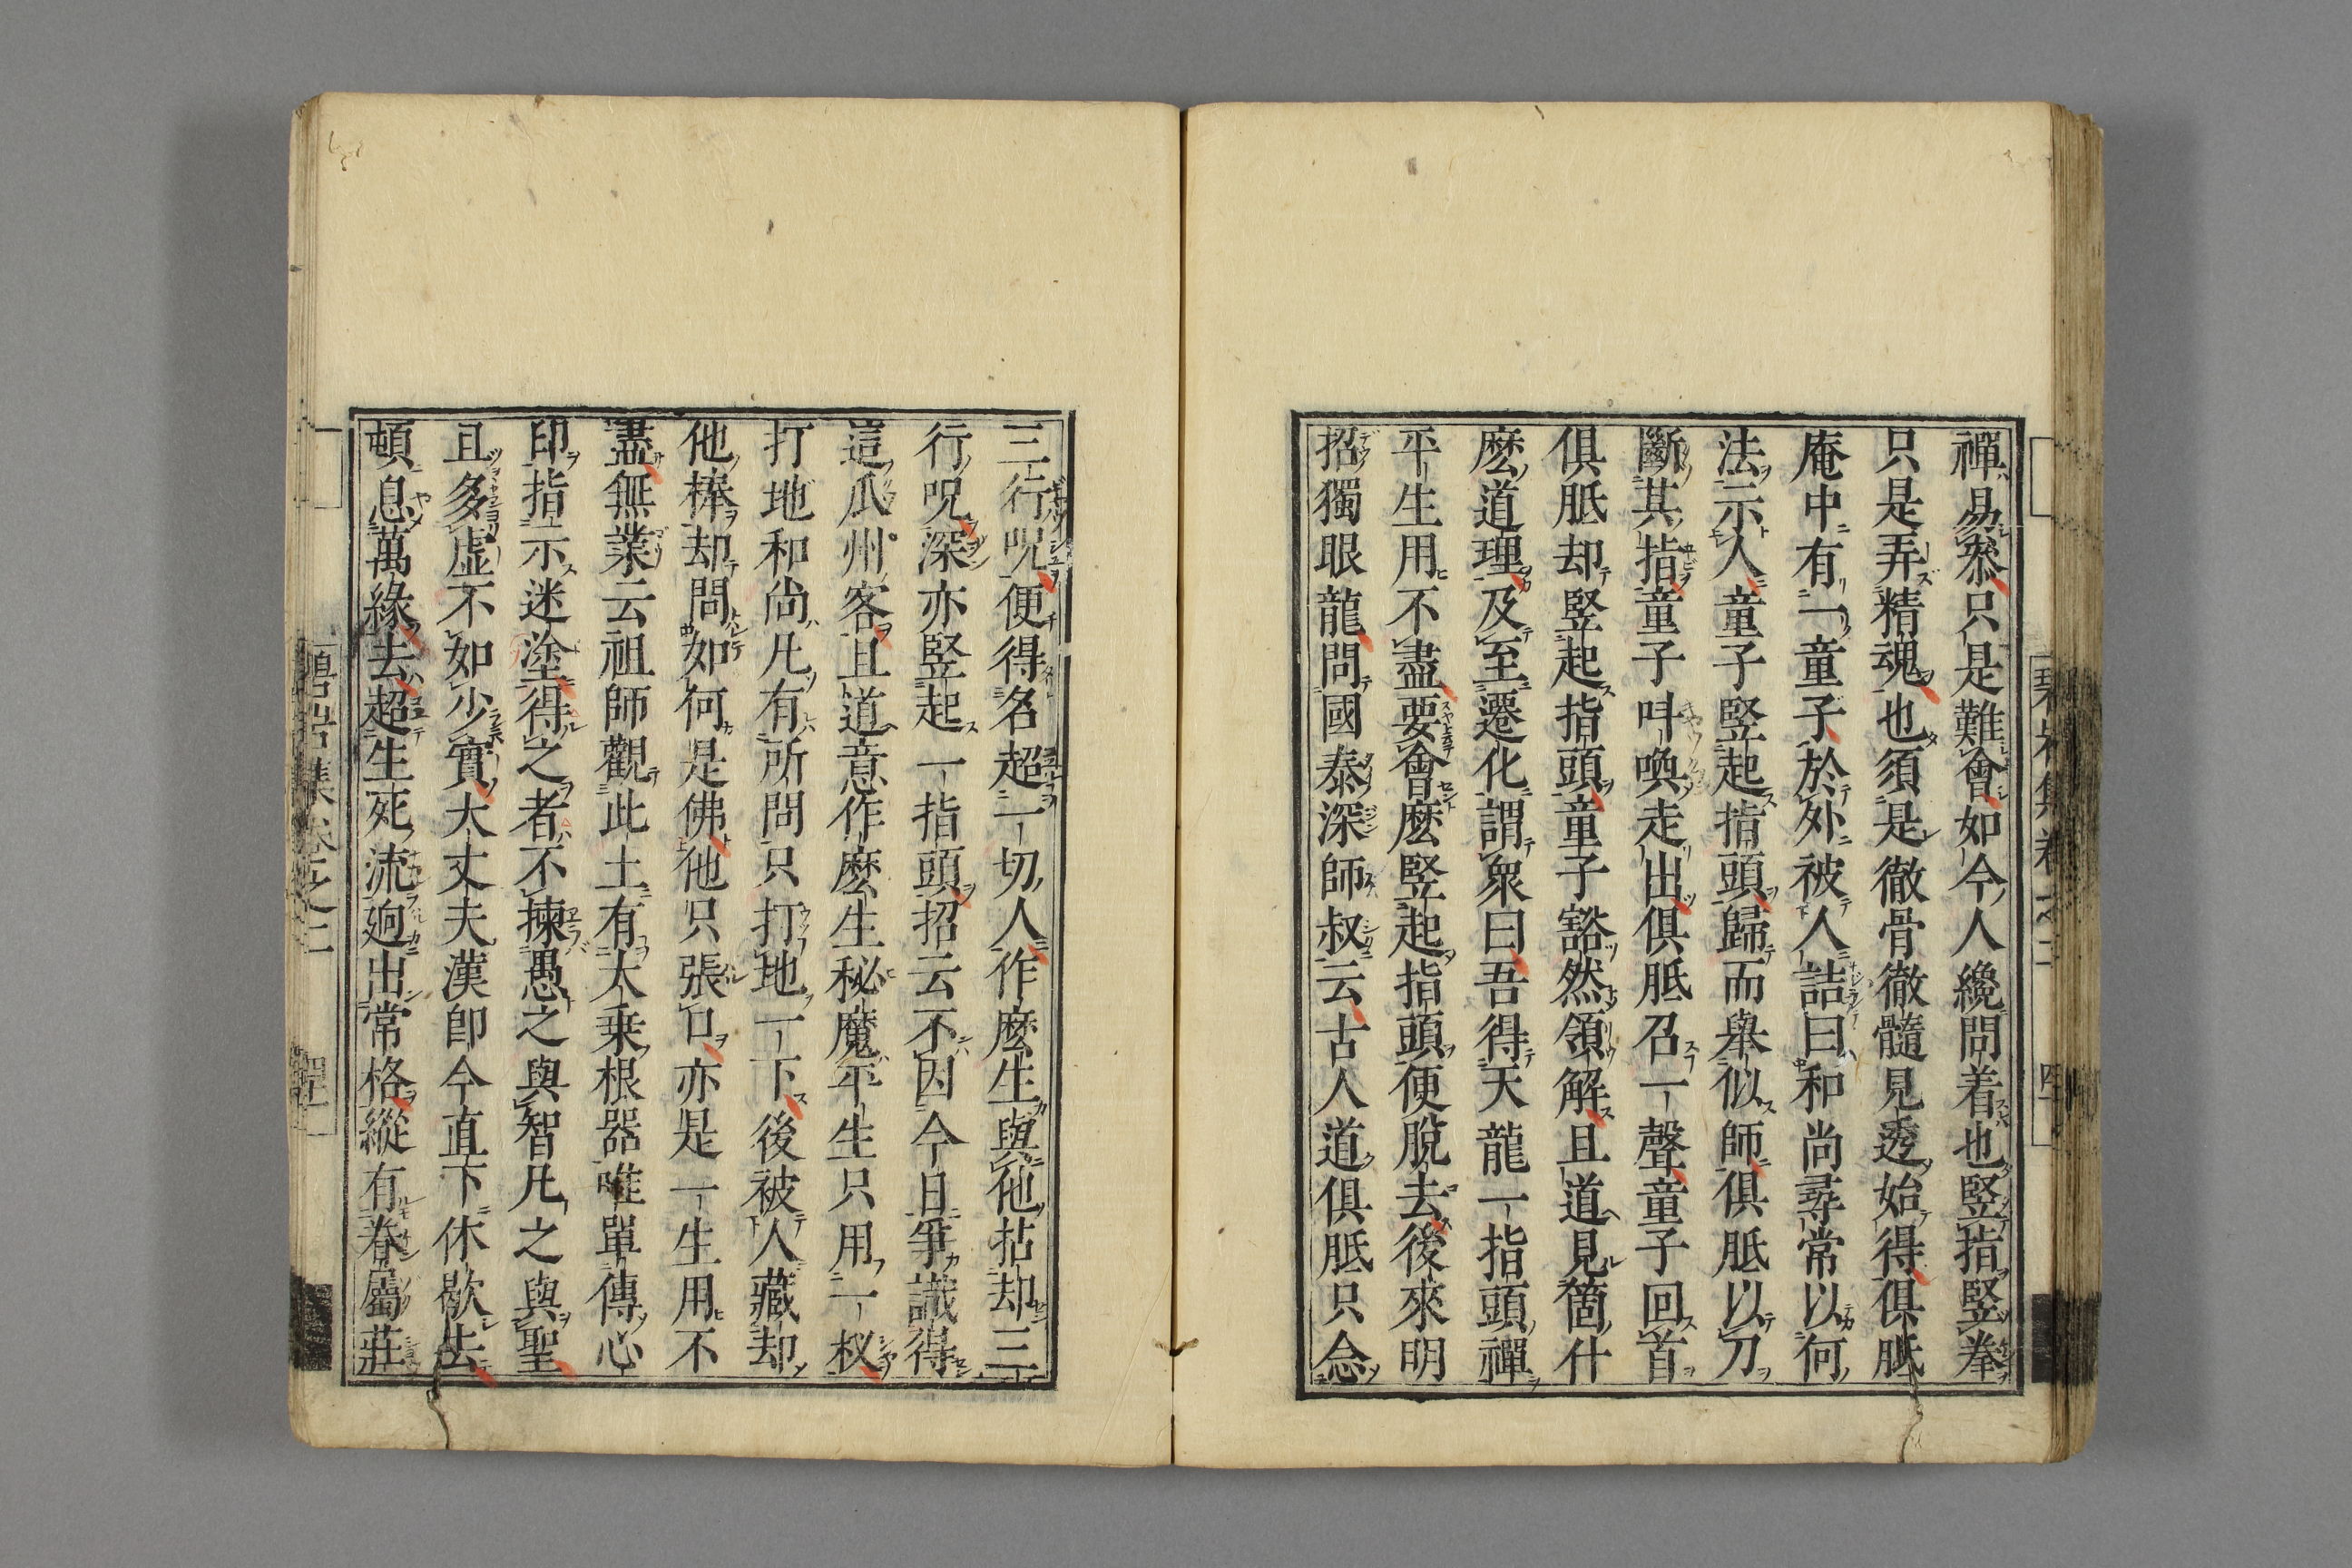 禪易叅只是難會如今人纔問着也竪指竪拳
只是弄精魂也須是徹骨徹髓見透始得俱胝
庵中有一童子於外被人詰曰和尚尋常以何
法示人童子竪起指頭歸而舉似師俱胝以刀
斷其指童子呌喚走出俱胝召一聲童子回首
俱胝却竪起指頭童子豁然領解且道見箇什
麼道理及至遷化謂衆曰吾得天龍一指頭禪
平生用不盡要會麼竪起指頭便脫去後來明
招獨眼龍問國泰深師叔云古人道俱胝只念
三行呪便得名超一切人作麼生與他拈却三
行呪深亦竪起一指頭招云不因今日爭識得
這瓜州客且道意作麼生秘魔平生只用一杈
打地和尚凡有所問只打地一下後被人藏却
他棒却問如何是佛他只張口亦是一生用不
盡無業云祖師觀此土有大乗根器唯單傳心
印指示迷塗得之者不揀愚之與智凡之與聖
且多虛不如少實大丈夫漢卽今直下休歇去
頓息萬緣去超生死流迥出常格縱有眷屬莊
碧岩集卷之二